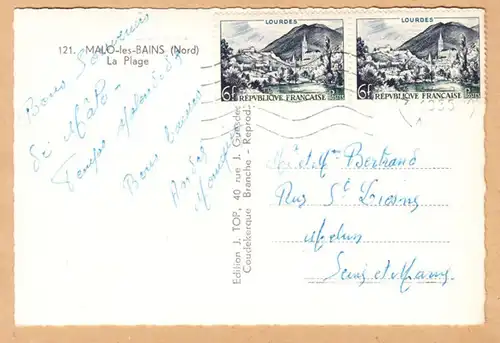 121. MALO-les-BAINS (Nord)
La Plage
Bons Souvenirs
de Malo
Temps
Bons baisers
Edition J. TOP, 40 rue J.
Coudekerque Branche - Reprod.
LOURDES
6f RÉPUBLIQUE FRANÇAISE POSTES
LOURDES
6f RÉPUBLIQUE FRANÇAISE POSTES
M et Mme Bertrand
Rue St
Melun
Seine et Marne